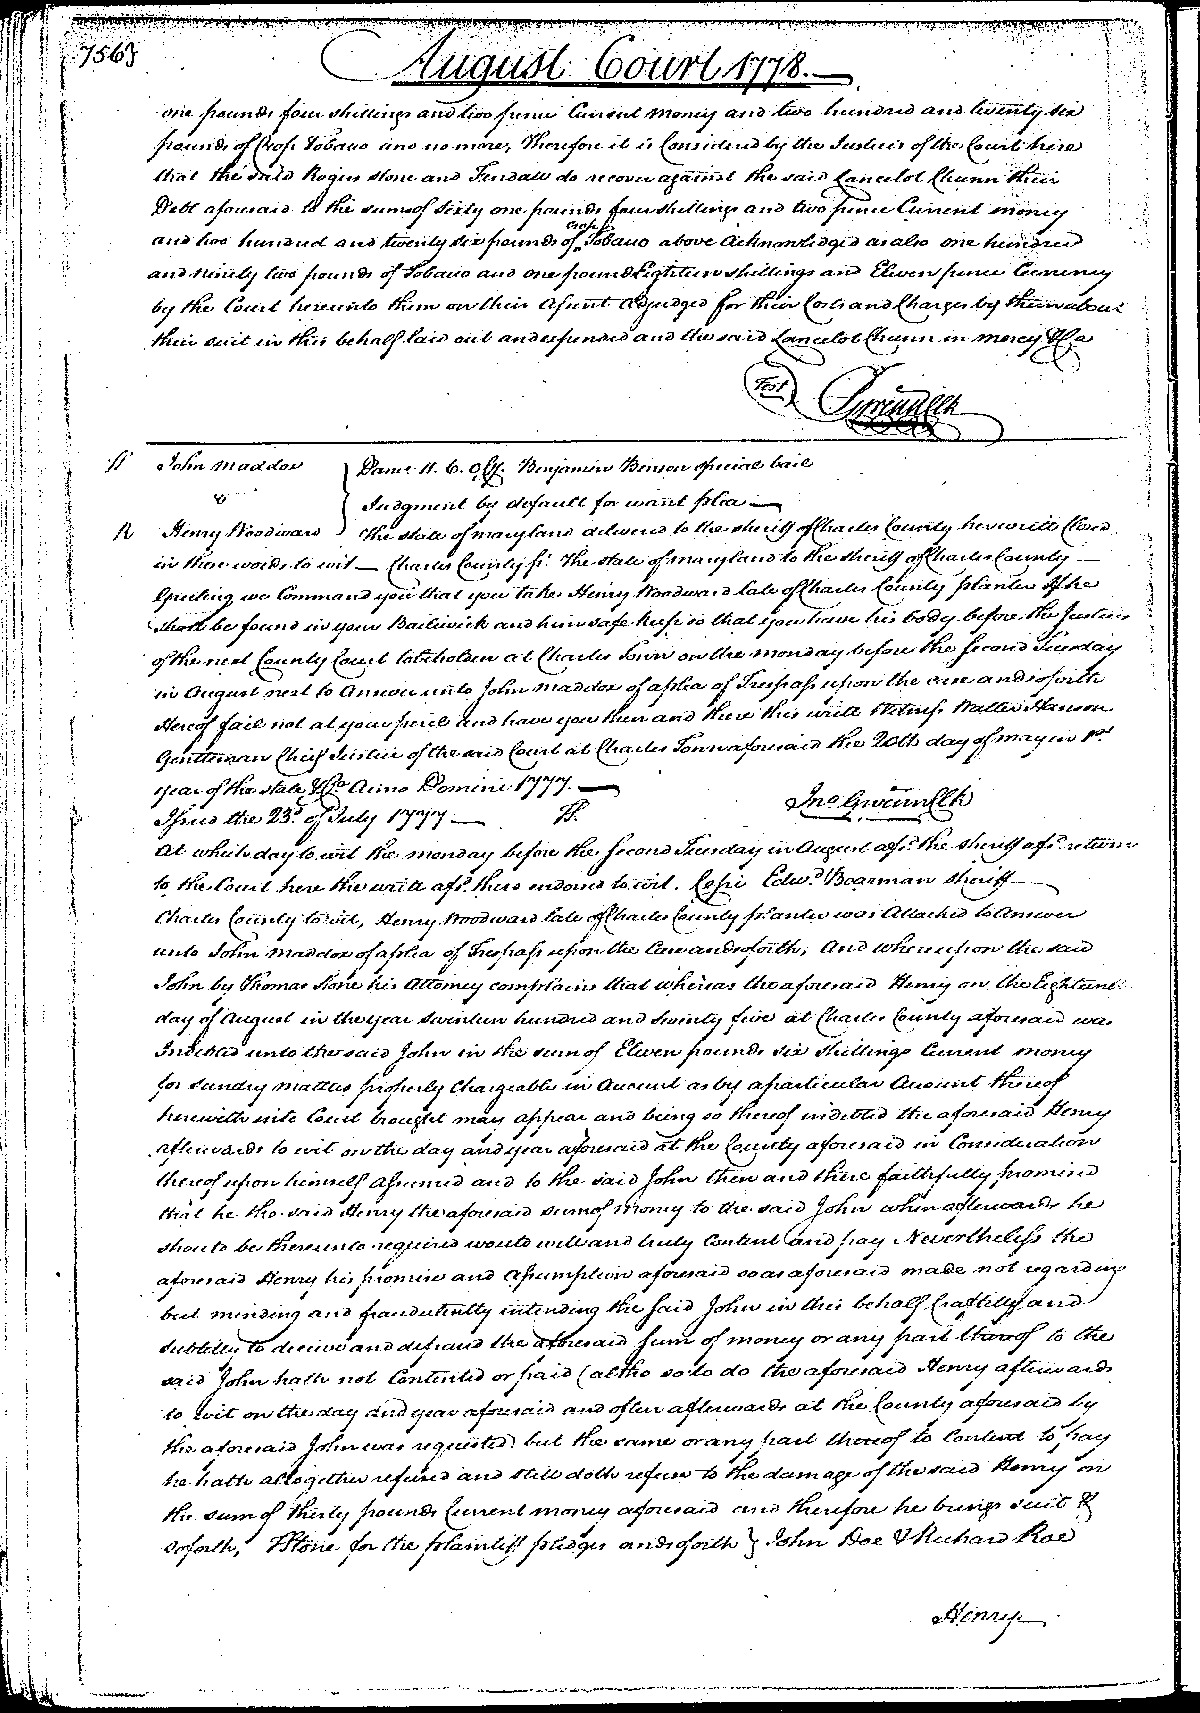 756}
August Court 1778.
one pounds four shillings and two pence Current money and two hundred and twenty six
pounds of Crop Tobacco and no more, Therefore it is Considered by the Justices of the Court here
that the said Rogers Stone and Tendall do recover against the said Lancelot Chunn their
Debt aforesaid to the sums of Sixty one pounds four shillings and two pence Current money
and two hundred and twenty six pounds of Crop Tobacco above Acknowledged as also one hundred
and ninety two pounds of Tobacco and one pound Eighteen shillings and Eleven pence Currency
by the Court here unto them on their Assent Adjudged for their Costs and Charges by them about
their suit in this behalf laid out and expended and the said Lancelot Chunn in mercy &Ca
Test
John Maddox
Benjamin Benson special bail
v
Judgment by default for want plea
Henry Woodward
The state of maryland delivered to the sheriff of Charles County her writt Closed
in these words to wit — Charles County ss. The state of maryland to the sheriff of Charles County —
Greeting we Command you that you take Henry Woodward late of Charles County planter if he
shall be found in your Bailiwick and him safe keep so that you have his body before the Justices
of the next County Court to be holden at Charles Town on the monday before the second Tuesday
in August next to Answer unto John Maddox of a plea of Trespass upon the case and soforth
Hereof fail not at your peril and have you then and there this writt Witness Walter Hanson
Gentleman Chief Justice of the said Court at Charles Town aforesaid the 20th day of may in 1st
year of the state &Ca Anno Domini 1777.
Jno Gwinn Clk
Issued the 23d of July 1777
At which day to wit the monday before the second Tuesday in August afsd. the sheriff afsd. return
to the Court here the writt afsd. thus endorsed to wit. Cepi Edwd Boarman sheriff
Charles County to wit, Henry Woodward late of Charles County planter was Attached to Answer
unto John Maddox of a plea of Trespass upon the Case and soforth, And whereupon the said
John by Thomas Stone his Attorney complains that whereas the aforesaid Henry on the Eighteenth
day of August in the year seventeen hundred and seventy five at Charles County aforesaid was
Indebted unto the said John in the sum of Eleven pounds six shillings Current money
for sundry matters properly Chargeable in Account as by a particular Account thereof
herewith into Court brought may appear and being so thereof indebted the aforesaid Henry
afterwards to wit on the day and year aforesaid at the County aforesaid in Consideration
thereof upon himself assumed and to the said John then and there faithfully promised
that he the said Henry the aforesaid sum of money to the said John when afterwards he
should be thereunto required would well and truly Content and pay Nevertheless the
aforesaid Henry his promise and assumption aforesaid so as aforesaid made not regarding
but minding and fraudulently intending the said John in this behalf Craftily and
subtilly to deceive and defraud the aforesaid sum of money or any part thereof to the
said John hath not Contented or paid (altho so to do the aforesaid Henry afterwards
to wit on the day and year aforesaid and often afterwards at the County aforesaid by
the aforesaid John was requested) but the same or any part thereof to Content to pay
he hath altogether refused and still doth refuse to the damage of the said Henry on
the sum of thirty pounds Current money aforesaid and therefore he brings suit &
soforth, TStone for the plaintiff pledges and soforth } John Doe & Richard Roe
Henry